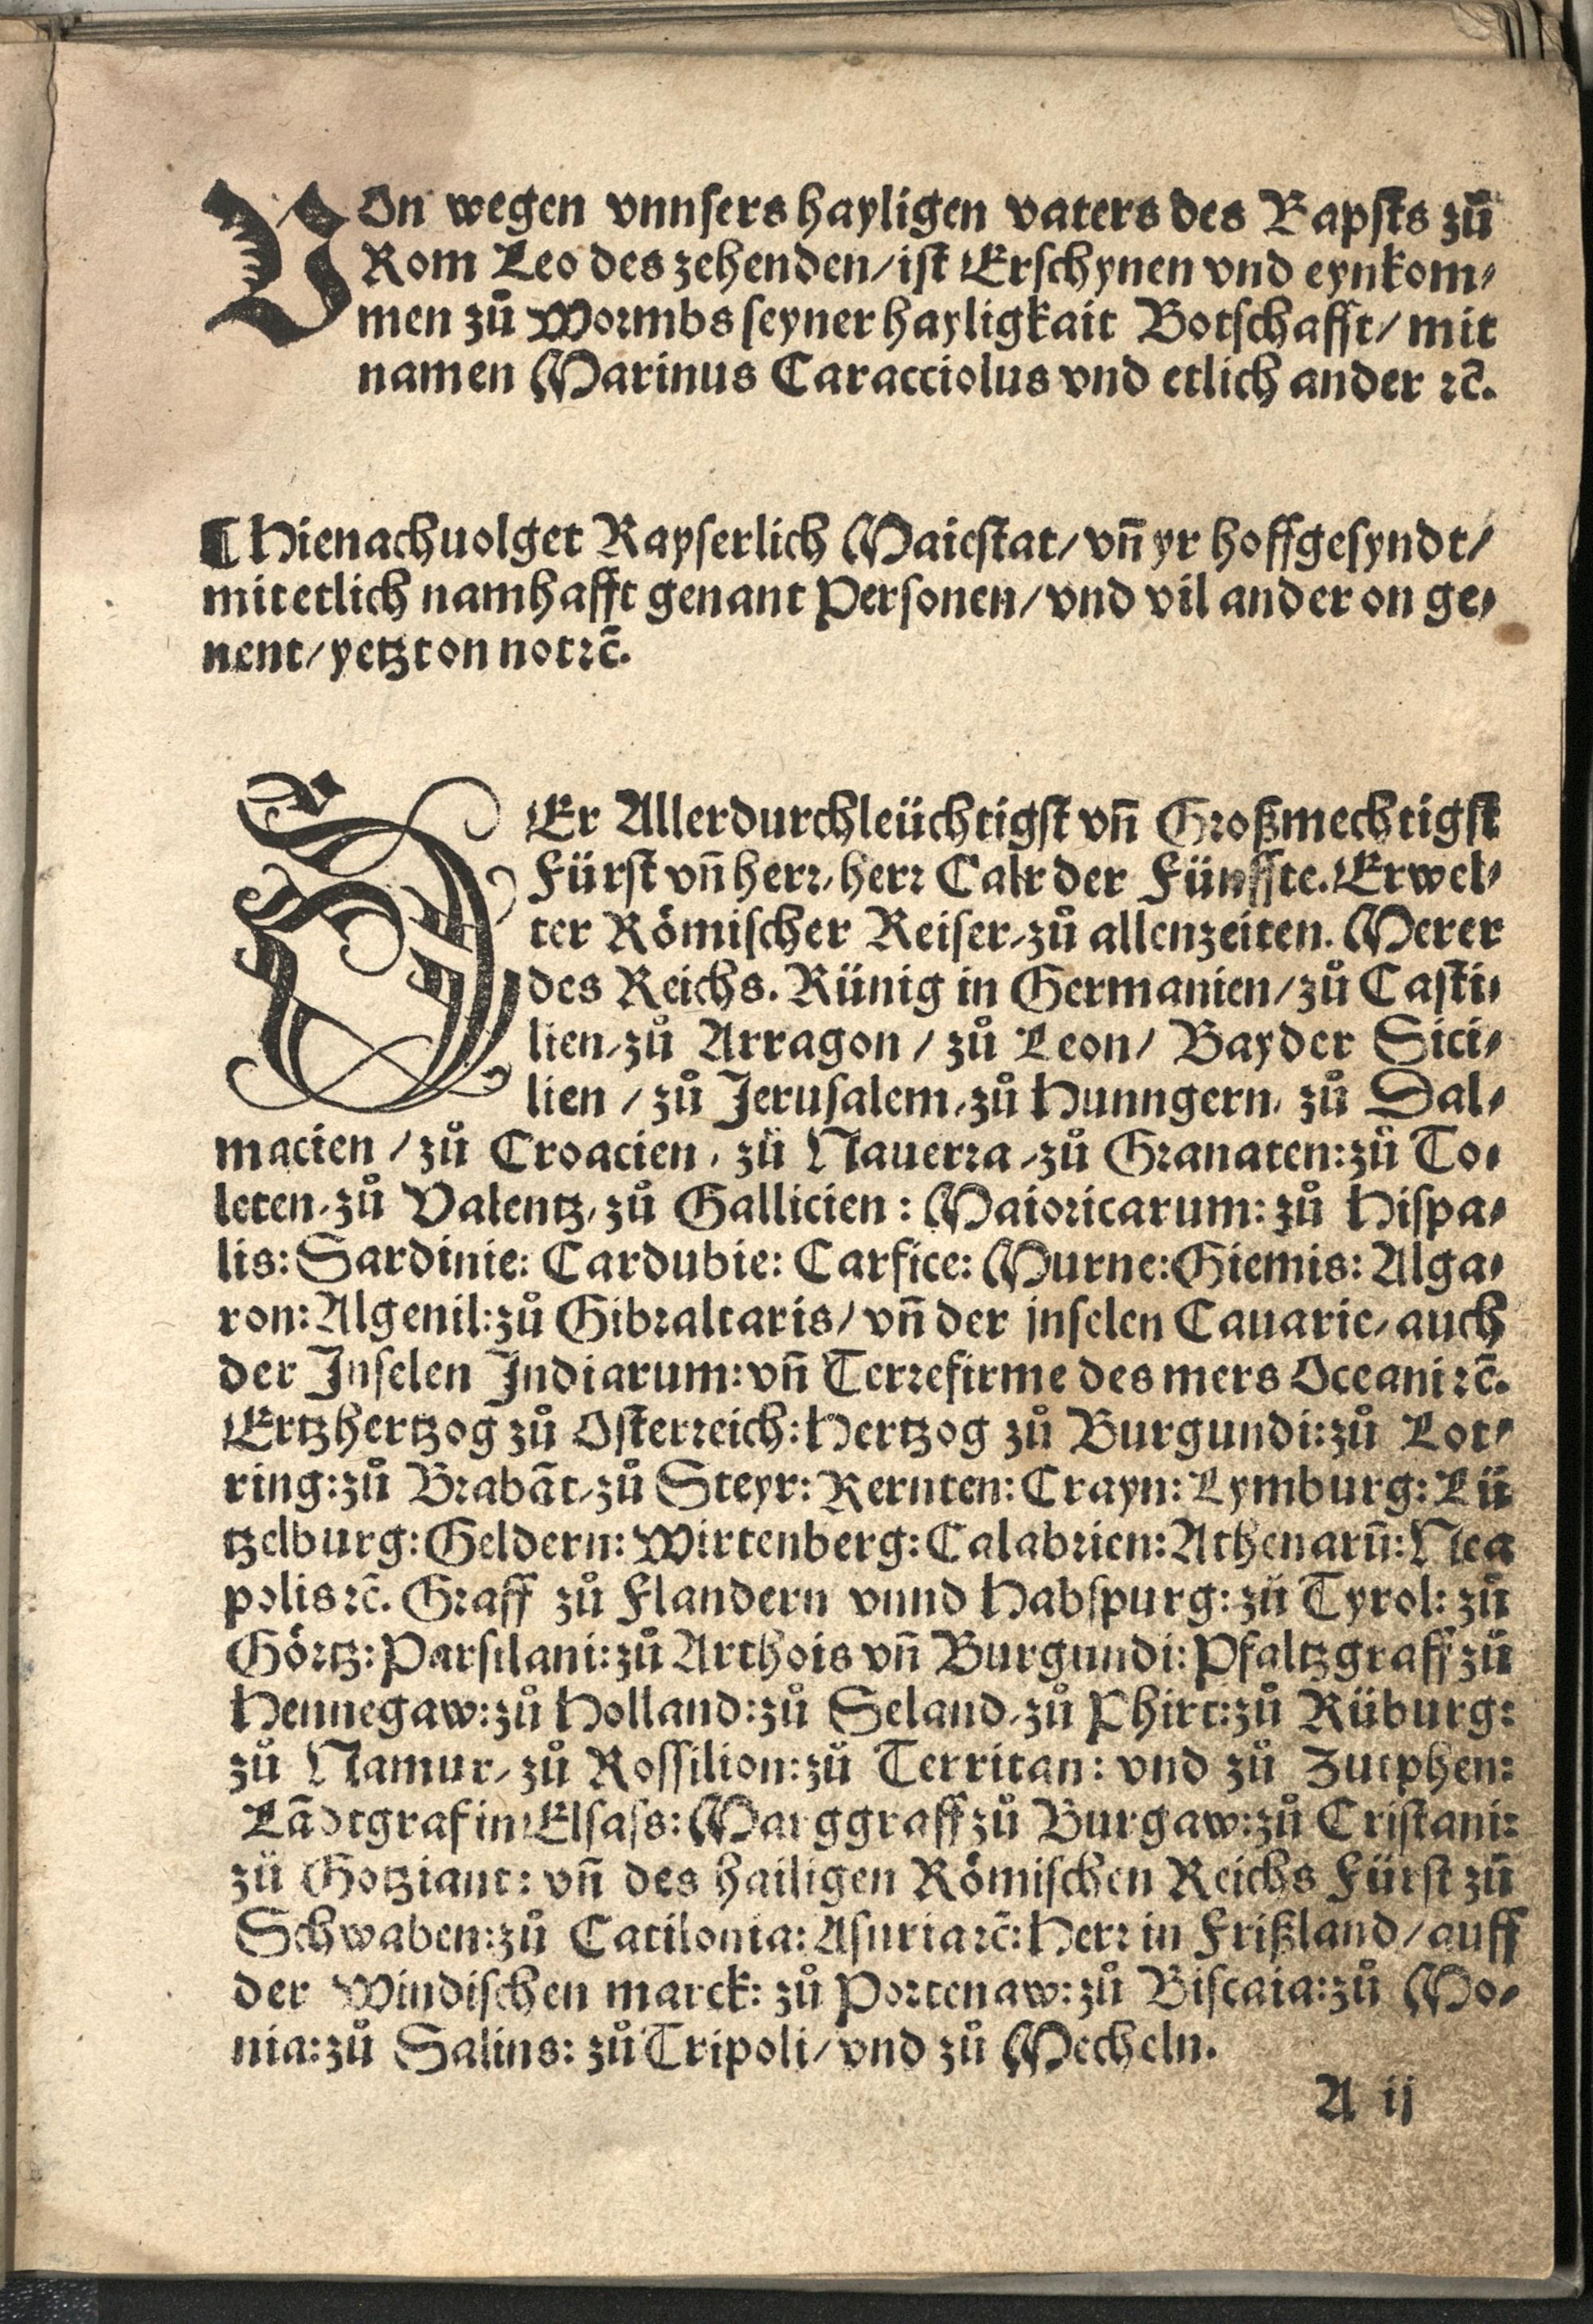 VOn wegen vnnsers hayligen vaters des Bapsts zů
Rom Leo des zehenden/ ist Erschynen vnd eynkom⸗
men zů Wormbs seyner hayligkait Botschafft/ mit
namen Marinus Caracciolus vnd etlich ander ꝛc̄.
¶ Hienachuolget Kayserlich Maiestat/ vn̄ yr hoffgesyndt/
mit etlich namhafft genant Personen/ vnd vil ander on ge⸗
nent/ yetzt on not ꝛc̄.
DEr Allerdurchleüchtigst vn̄ Großmechtigst
Fürst vn̄ herr/ herr Calr der Fünffte. Erwel⸗
ter Römischer Keiser/ zů allenzeiten. Merer
des Reichs. Künig in Germanien/ zů Casti⸗
lien/ zů Arragon/ zů Leon/ Bayder Sici⸗
lien/ zů Jerusalem/ zů Hunngern/ zů Dal⸗
macien/ zů Croacien/ zů Nauerra/ zů Granaten: zů To⸗
leten/ zů Valentz/ zů Gallicien: Maioricarum: zů Hispa⸗
lis: Sardinie: Cardubie: Carsice: Murne: Giemis: Alga⸗
ron: Algenil: zů Gibraltaris/ vn̄ der inselen Cauarie/ auch
der Inselen Indiarum: vn̄ Terrefirme des mers Oceani ꝛc̄.
Ertzhertzog zů Osterreich: Hertzog zů Burgundi: zů Lot⸗
ring: zů Brabāt/ zů Steyr: Kernten: Crayn: Lymburg: Lü
tzelburg: Geldern: Wirtenberg: Calabrien: Athenarū: Nea
polis ꝛc̄. Graff zů Flandern vnnd Habspurg: zů Tyrol: zů
Görtz: Parsilani: zů Arthois vn̄ Burgundi: Pfaltzgraff zů
Hennegaw: zů Holland: zů Seland/ zů Phirt: zů Küburg:
zů Namur/ zů Rossilion: zů Territan: vnd zů Zutphen:
Lādtgraf in Elsass: Marggraff zů Burgaw: zů Cristani:
zů Gotziant: vn̄ des hailigen Römischen Reichs Fürst zů
Schwaben: zů Catilonia: Asuria ꝛc̄: Herr in Frißland/ auff
der Windischen marck: zů Portenaw: zů Biscaia: zů Mo⸗
nia: zů Salins: zů Tripoli/ vnd zů Mecheln.
A ij